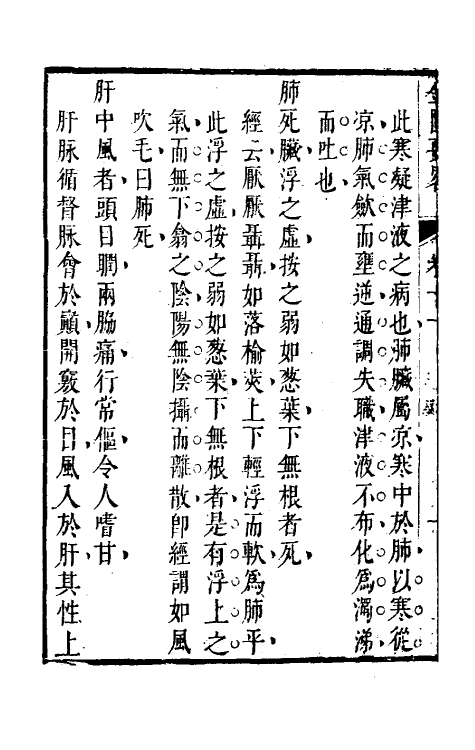 此寒疑津液之病也肺臟屬凉寒中於肺以寒從
凉肺氣歛而壅逆通調失職津液不布化爲濁涕
而吐也
肺死臟浮之虛按之弱如葱葉下無根者死
經云厭厭聶聶如落榆莢上下輕浮而軟爲肺平
此浮之虛按之弱如葱葉下無根者是有浮上之
氣而無下翕之陰陽無陰攝而離散卽經謂如風
吹毛曰肺死
肝中風者頭目瞤兩脇痛行常傴令人嗜甘
肝脉循督脉會於巔開竅於目風入於肝其性上